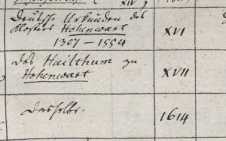 XIV
Deutsche Urkunden des
Klosters Hohenwart
1327 — 1554
XVI
Das Hailthum zu
Hohenwart
XVII
Dasselbe.
1614